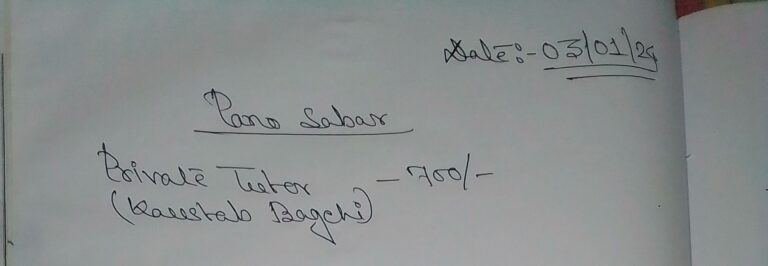 Date:- 03/01/24
Pano Sabar
Private Tutor - 700/-
(Kaustab Bagchi)